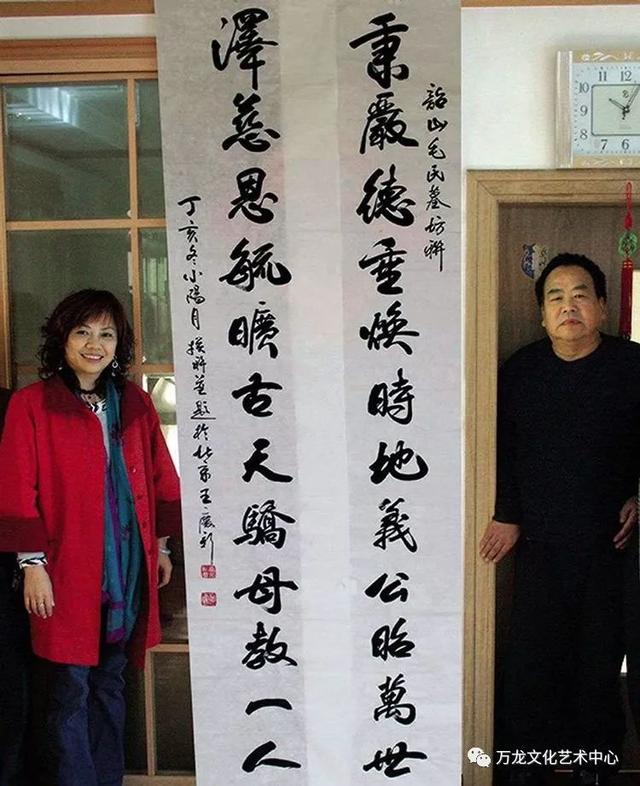 韶山毛氏墓坊聯
秉嚴德重煥時地義公昭萬世
澤慈恩毓曠古天驕母教一人
丁亥冬小陽月撰聯並題於北京王
万龙文化艺术中心